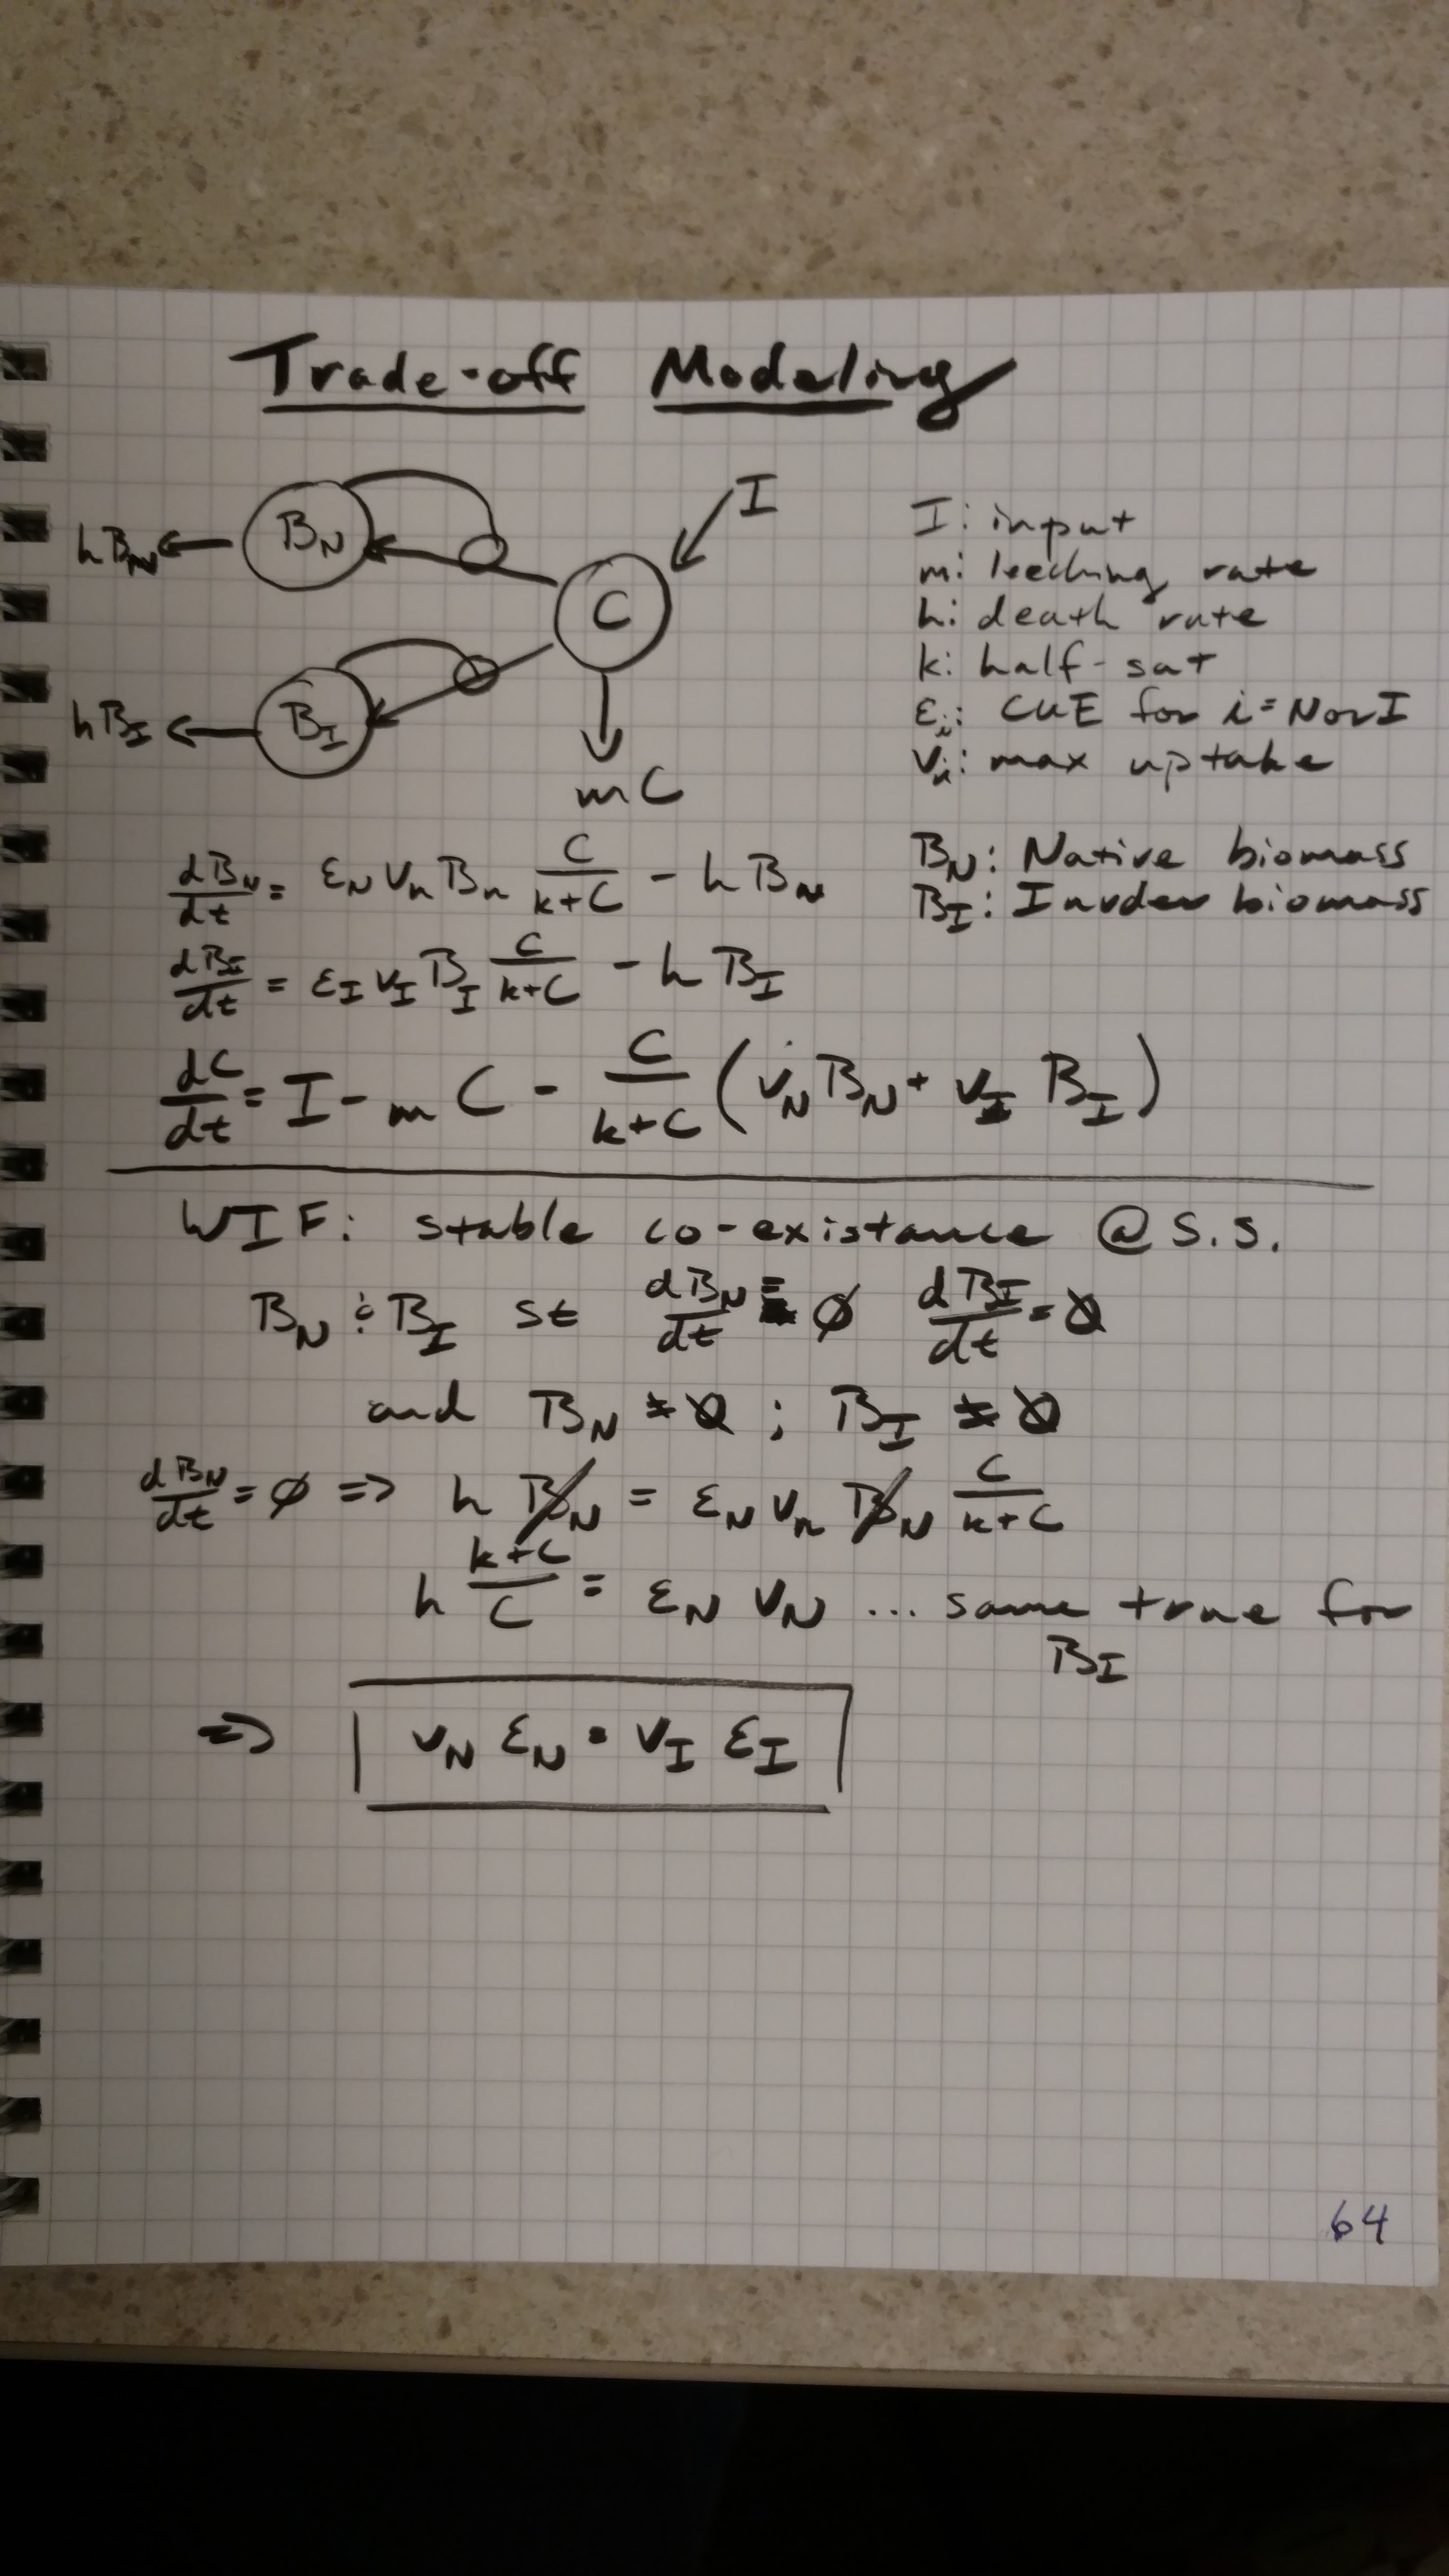 Trade-off Modeling
I
hB_N ← B_N
C
hB_I ← B_I
mC
I: input
m: leeching rate
h: death rate
k: half-sat
ε_i: CUE for i=N or I
v_i: max uptake
B_N: Native biomass
B_I: Invder biomass
dB_N/dt = ε_N v_n B_n C/(k+C) - h B_N
dB_I/dt = ε_I v_I B_I C/(k+C) - h B_I
dC/dt = I - mC - C/(k+C) (v_N B_N + v_I B_I)
WIF: stable co-existance @ S.S.
B_N & B_I st dB_N/dt = ∅ dB_I/dt = ∅
and B_N ≠ ∅ ; B_I ≠ ∅
dB_N/dt = ∅ => h B_N = ε_N v_n B_N C/(k+C)
h (k+C)/C = ε_N v_N ... same true for
B_I
=> v_N ε_N = v_I ε_I
64